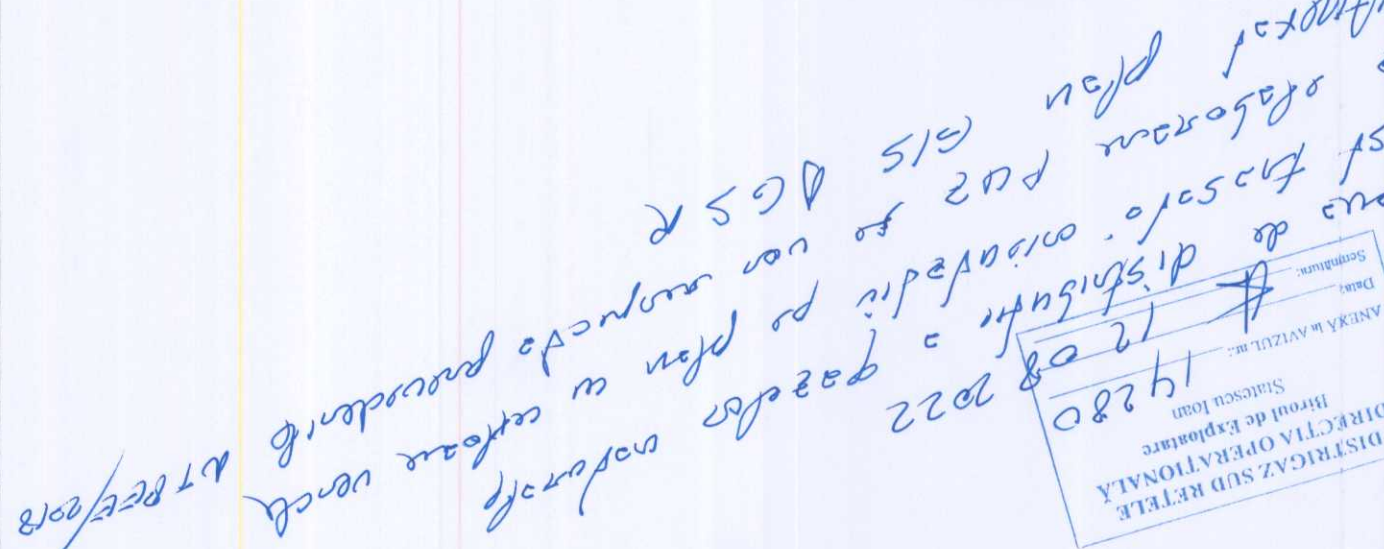 DISTRIGAZ SUD RETELE
DIRECTIA OPERAȚIONALĂ
Biroul de Exploatare
Statescu Ioan
ANEXĂ la AVIZUL nr.: 14280
Data: 12 08 2022
Semnătura:
de distribuție a gazelor naturale
trasată orientativ pe plan cu culoare verde
elaborare PUZ se vor respecta prevederile NTPEE/2018
Anexat plan GIS DGSR